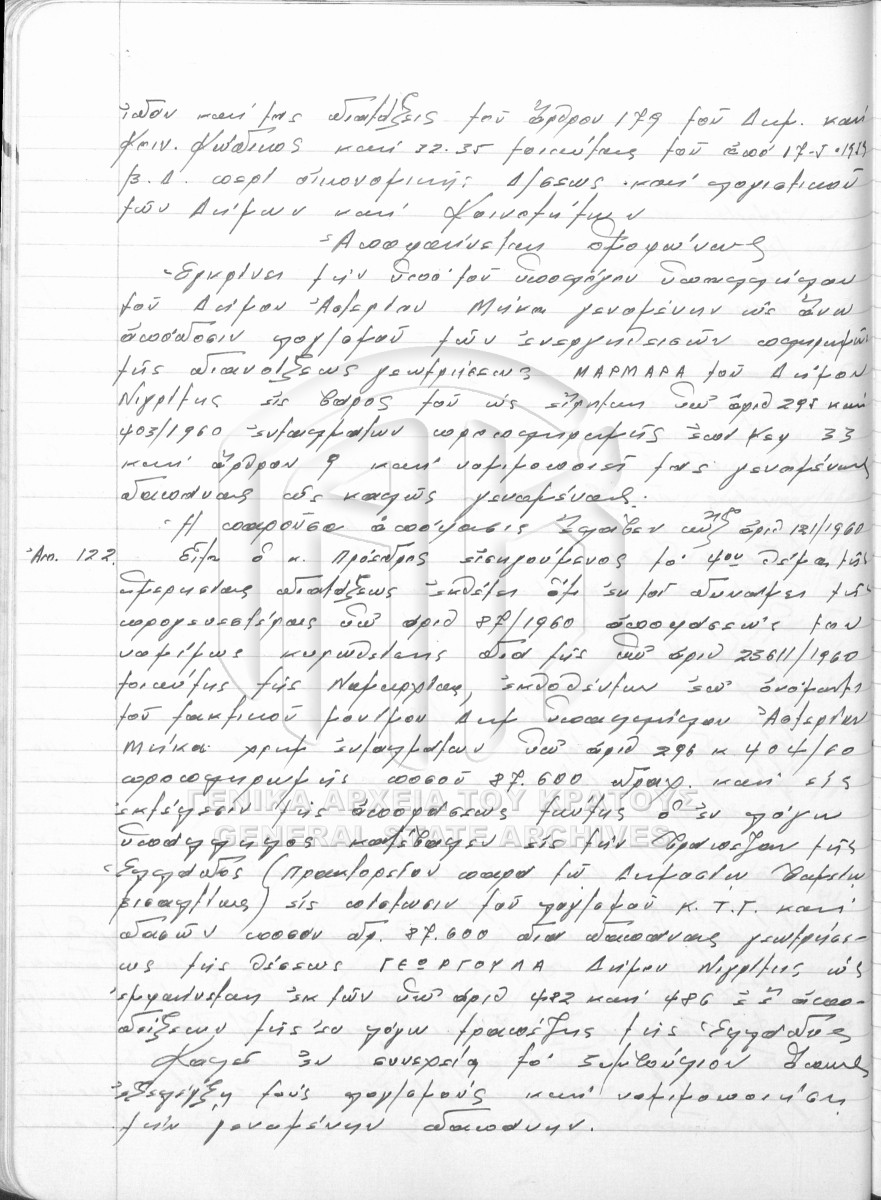 ἰδὸν καὶ τὰς διατάξεις τοῦ ἄρθρου 179 τοῦ Δημ. καὶ
Κοιν. Κώδικος καὶ 32.35 τοιαύτας τοῦ ἀπὸ 17-5-1959
Β.Δ. περὶ οἰκονομικῆς Δ/σεως καὶ λογιστικοῦ
τῶν Δήμων καὶ Κοινοτήτων
Ἀποφαίνεται ὁμοφώνως
Ἐγκρίνει τὴν ὑπὸ τοῦ ὑπολόγου ὑπαλλήλου
τοῦ Δήμου Ἀστερίου Μήκα γενομένην ὡς ἄνω
ἀπόδοσιν λογ/σμοῦ τῶν ἐνεργηθεισῶν πληρωμῶν
τῆς διανοίξεως γεωτρήσεως ΜΑΡΜΑΡΑ τοῦ Δήμου
Νιγρίτης εἰς βάρος τοῦ ὡς εἴρηται ὑπ' ἀριθ 295 καὶ
403/1960 ἐνταλμάτων προπληρωμῆς ἐπὶ Κεφ 33
καὶ ἄρθρου 9 καὶ νομιμοποιεῖ τὰς γενομένας
δαπάνας ὡς καλῶς γενομένας.
Ἡ παροῦσα ἀπόφασις ἔλαβεν αὔξ ἀριθ 121/1960
Ἀπ. 122. Εἶτα ὁ κ. Πρόεδρος εἰσηγούμενος τὸ 4ον θέμα τῆς
ἡμερησίας διατάξεως ἐκθέτει ὅτι ἐκ τοῦ δυνάμει τῆς
προγενεστέρας ὑπ' ἀριθ 87/1960 ἀποφάσεώς του
νομίμως κυρωθείσης διὰ τῆς ὑπ' ἀριθ 23611/1960
τοιαύτης τῆς Νομαρχίας, ἐκδοθέντων ἐπ' ὀνόματι
τοῦ τακτικοῦ μονίμου Δημ ὑπαλλήλου Ἀστερίου
Μήκα χρημ ἐνταλμάτων ὑπ' ἀριθ 296 κ 404/60
προπληρωμῆς ποσοῦ 87.600 δραχ. καὶ εἰς
ἐκτέλεσιν τῆς ἀποφάσεως ταύτης ὁ ἐν λόγῳ
ὑπάλληλος κατέβαλεν εἰς τὴν Τράπεζαν τῆς
Ἑλλάδος (Πρακτορεῖον παρὰ τῷ Δημοσίῳ Ταμείῳ
Βισαλτίας) εἰς πίστωσιν τοῦ λογ/σμοῦ Κ.Τ.Γ. καὶ
δασῶν ποσὸν δρ. 87.600 διὰ δαπάνας γεωτρήσε-
ως τῆς θέσεως ΓΕΩΡΓΟΥΛΑ Δήμου Νιγρίτης ὡς
ἐμφαίνεται ἐκ τῶν ὑπ' ἀριθ 482 καὶ 486 ἐ.ἔ ἀπο-
δείξεων τῆς ἐν λόγῳ τραπέζης τῆς Ἑλλάδος
Καλεῖ ἐν συνεχείᾳ τὸ Συμβούλιον ὅπως
ἐξελέγξῃ τοὺς λογ/σμοὺς καὶ νομιμοποιήσῃ
τὴν γενομένην δαπάνην.
ΓΕΝΙΚΑ ΑΡΧΕΙΑ ΤΟΥ ΚΡΑΤΟΥΣ
GENERAL STATE ARCHIVES